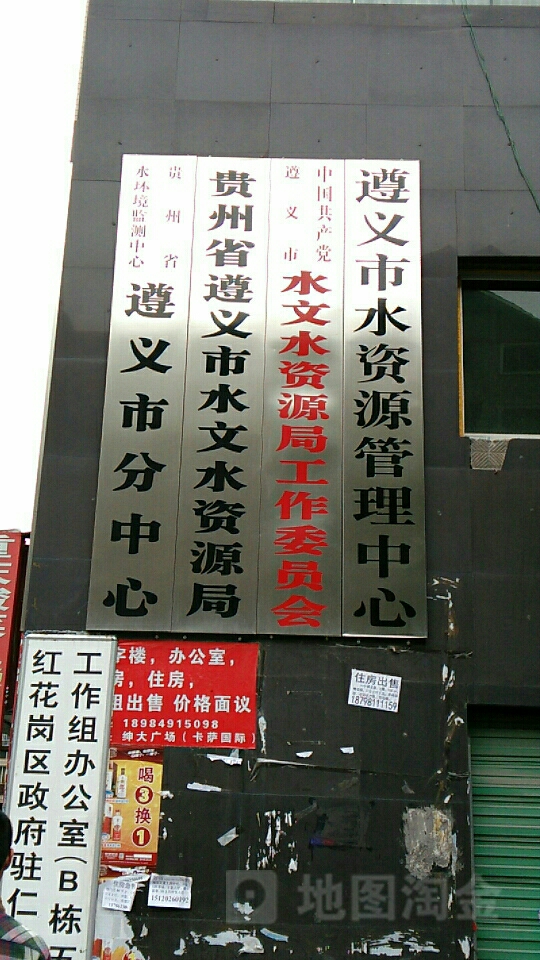 遵义市水资源管理中心
中国共产党
遵义市
水文水资源局工作委员会
贵州省遵义市水文水资源局
贵州省
水环境监测中心
遵义市分中心
字楼，办公室，
房，住房，
租出售 价格面议
18984915098
绅大广场（卡萨国际）
住房出售
18798111159
工作组办公室(B栋五
红花岗区政府驻仁
喝
3
换
1
15120260192
地图淘金